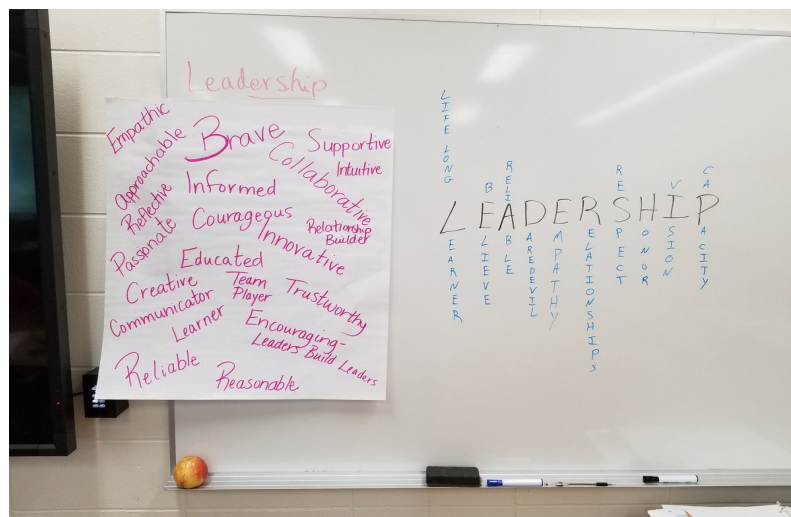 Leadership
Empathic
Approachable
Reflective
Passionate
Brave
Supportive
Collaborative
Intuitive
Informed
Courageous
Relationship
Builder
Innovative
Educated
Creative
Team
Player
Trustworthy
Communicator
Learner
Encouraging-
Leaders Build Leaders
Reliable
Reasonable
LEADERSHIP
LIFE LONG LEARNER
BELIEVE
RELIABLE
DAREDEVIL
EMPATHY
RELATIONSHIPS
RESPECT
HONOR
VISION
CAPACITY